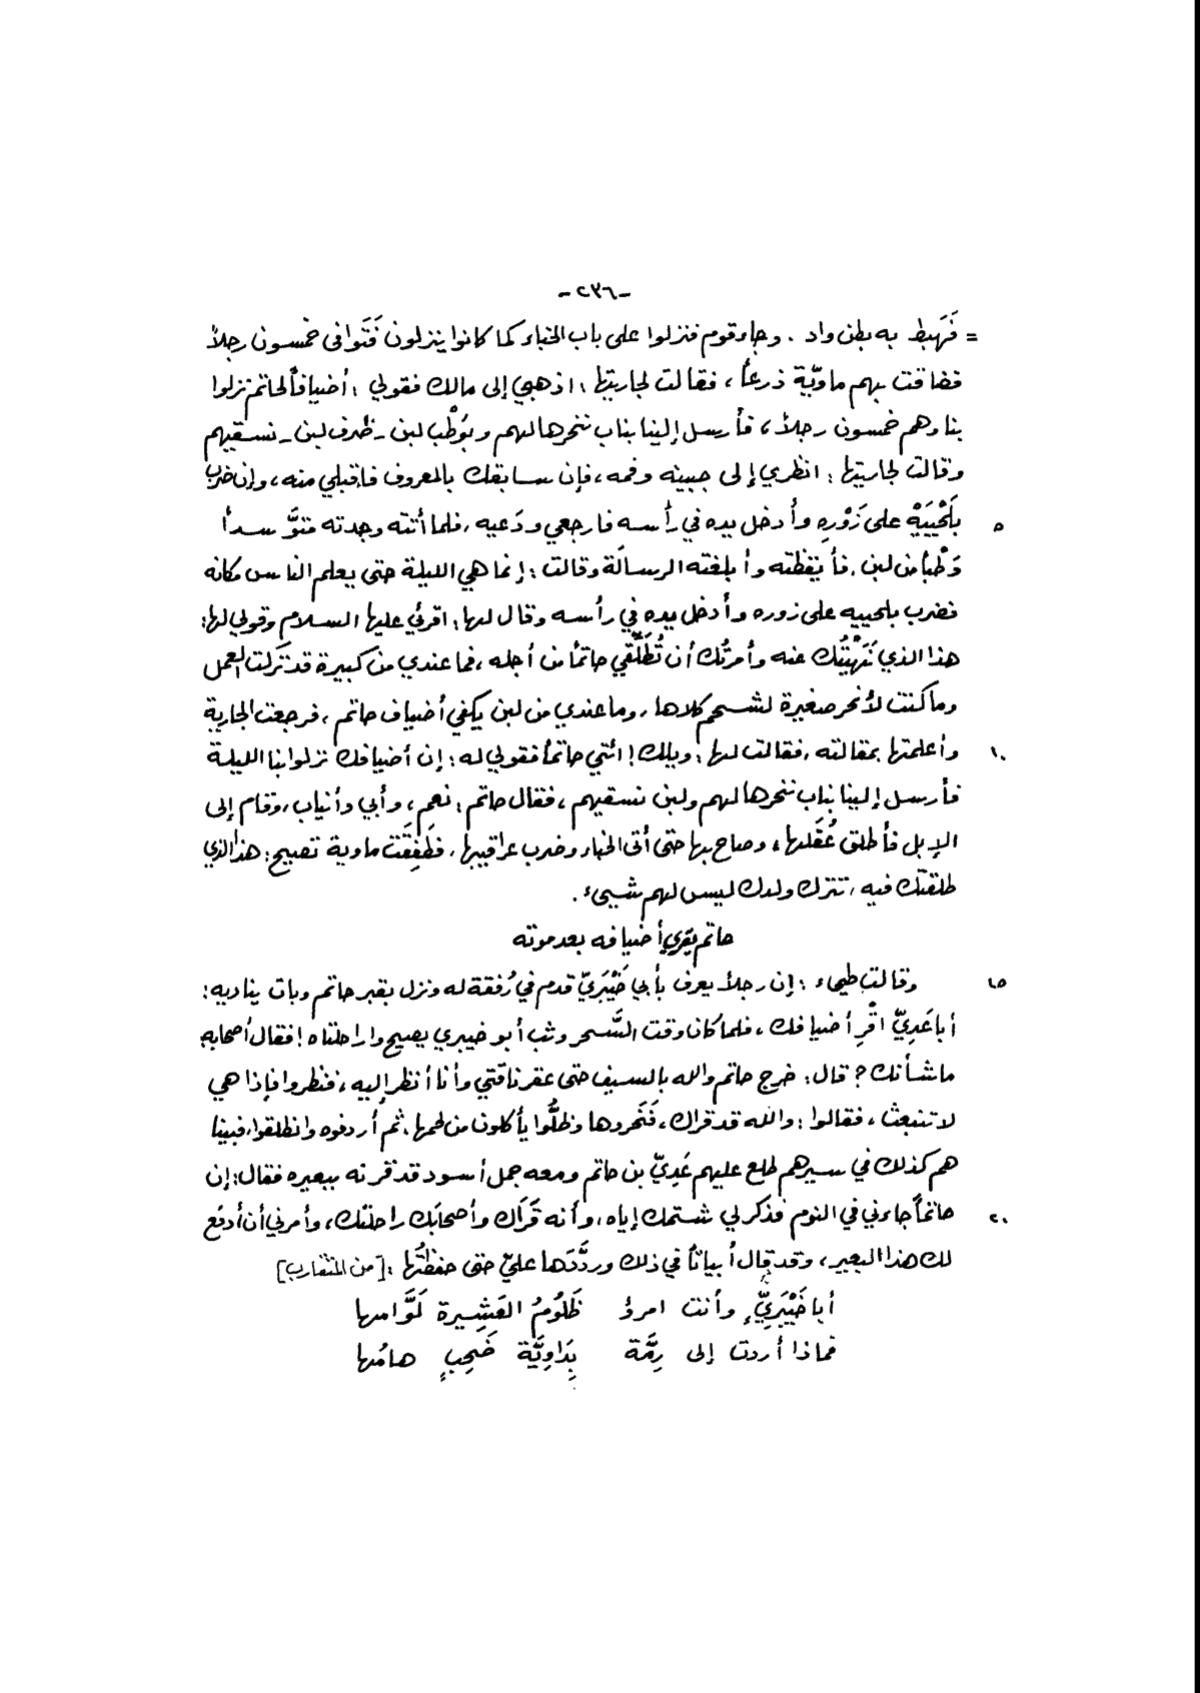 -٢٣٦-
= فَهَبط به بطن واد . وجاء قوم فنزلوا على باب الخباء كما كانوا ينزلون فَتَوافى خمسون رجلاً
فضاقت بهم ماويّة ذرعاً ، فقالت لجاريتها : اذهبي إلى مالك فقولي : أضيافاً لحاتم نزلوا
بنا وهم خمسون رجلاً ، فأرسل إلينا بناب ننحرها لهم وبوَطْب لبن - ظرف لبن - نسقيهم
وقالت لجاريتها : انظري إلى جبينه وفمه ، فإن سابقك بالمعروف فاقبلي منه ، وإن ضرب
٥ بلَحْيَيْه على زَوْرِه وأدخل يده في رأسه فارجعي ودَعيه ، فلما أتته وجدته متوَّسداً
وَطْباً من لبن ، فأيقظته وأبلغته الرسالة وقالت : إنما هي الليلة حتى يعلم الناس مكانه
فضرب بلحييه على زوره وأدخل يده في رأسه وقال لها : اقرئي عليها السلام وقولي لها :
هذا الذي نَهَيْتُك عنه وأمرتُك أن تُطَلِّقي حاتماً من أجله ، فما عندي من كبيرة قد تَركت العمل
وما كنت لأنحر صغيرة لشحم كلاها ، وما عندي من لبن يكفي أضياف حاتم ، فرجعت الجارية
١٠ وأعلمتها بمقالته ، فقالت لها : ويلك ! ائتي حاتماً فقولي له : إن أضيافك نزلوا بنا الليلة
فأرسل إلينا بناب ننحرها لهم ولبن نسقيهم ، فقال حاتم : نعم ، وأبي وأنياب ، وقام إلى
الإبل فأطلق عُقَلها ، وصاح بها حتى أتى الخباء وضرب عراقيبها ، فطَفِقَت ماوية تصيح : هذا الذي
طلقتك فيه ، تترك ولدك ليس لهم شيىء .
حاتم يَقري أضيافه بعد موته
١٥ وقالت طيىء : إن رجلاً يعرف بأبي خَيْبَريّ قدم في رُفقة له ونزل بقبر حاتم وبات يناديه :
أبا عَدِيّ اقْرِ أضيافك ، فلما كان وقت السَّحر وثب أبو خيبري يصيح وا راحلتاه ! فقال أصحابه
ما شأنك ؟ قال : خرج حاتم والله بالسيف حتى عقر ناقتي وأنا أنظر إليه ، فنظروا فإذا هي
لا تنبعث ، فقالوا : والله قد قراك ، فَنَحروها وظلُّوا يأكلون من لحمها ، ثم أردفوه وانطلقوا ، فبينا
هم كذلك في سيرهم طلع عليهم عَدِيّ بن حاتم ومعه جمل أسود قد قرنه ببعيره فقال : إن
٢٠ حاتماً جاءني في النوم فذكر لي شتمك إياه ، وأنه قَرَاك وأصحابَك راحلتك ، وأمرني أن أدفع
لك هذا البعير ، وقد قال أبياتاً في ذلك وردَّدَها عليّ حتى حفظتُها : [من المتقارب]
أبا خَيْبَرِيٍّ وأنت امرؤ ظَلُومُ العَشِيرة لَوَّامها
فماذا أردت إلى رِمَّة بِدَاوِيَّة صَخِبٍ هامُها